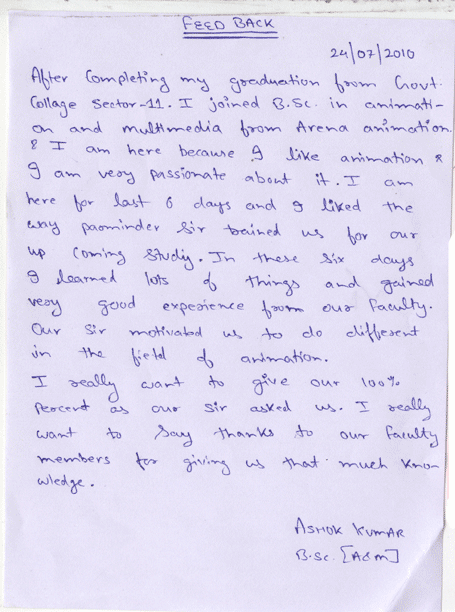 FEED BACK
24/07/2010
After Completing my graduation from Govt.
Collage Sector-11. I joined B.Sc. in animati-
on and multimedia from Arena animation.
& I am here because I like animation &
I am very passionate about it. I am
here for last 6 days and I liked the
way parminder Sir trained us for our
up coming studiy. In these six days
I learned lots of things and gained
very good experience from our faculty.
Our Sir motivated us to do different
in the field of animation.
I really want to give our 100%
percent as our sir asked us. I really
want to say thanks to our faculty
members for giving us that much know
wledge.
ASHOK KUMAR
B.Sc. [A&M]